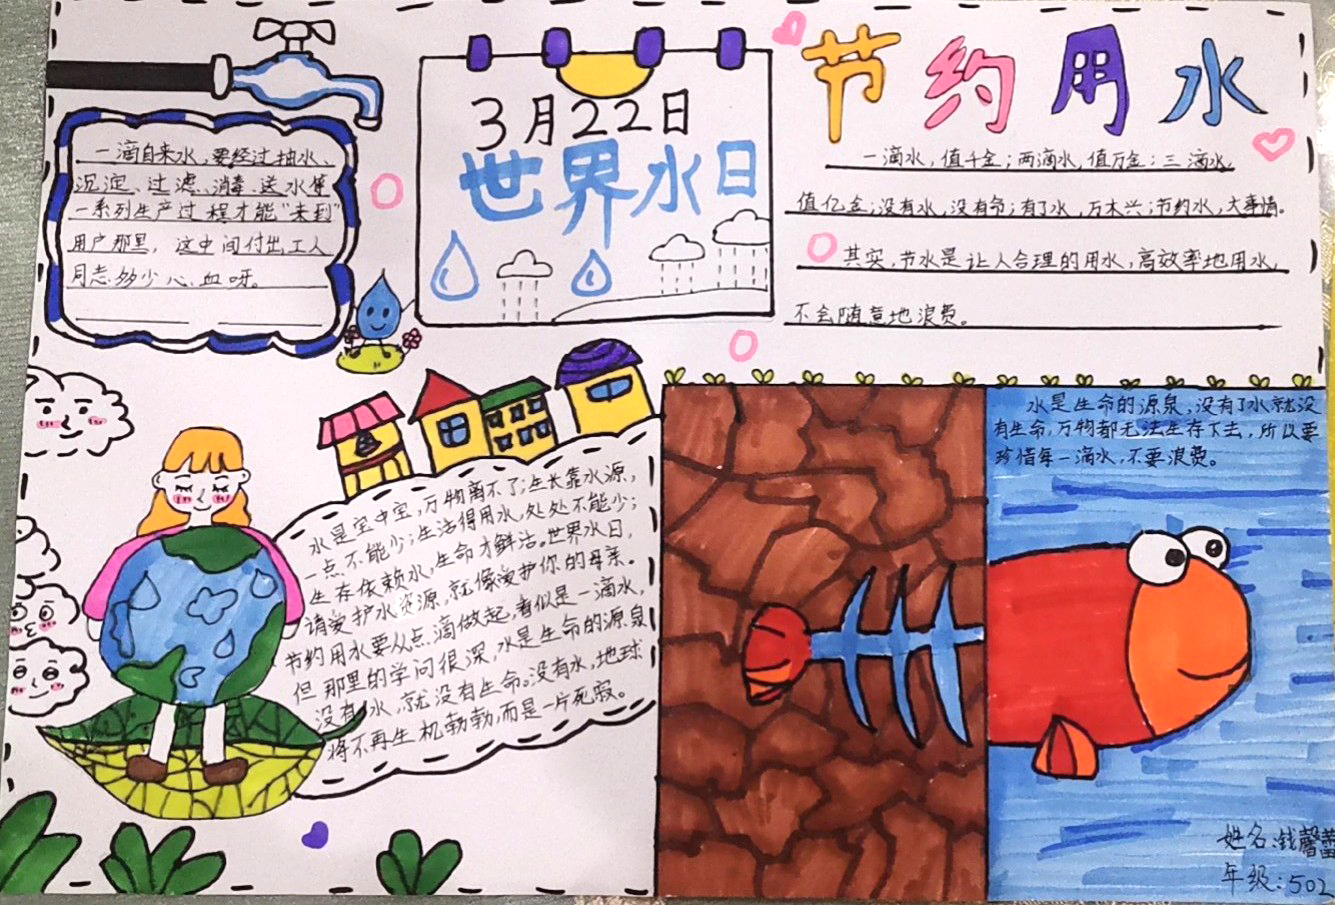 节约用水
3月22日
世界水日
一滴自来水,要经过抽水、
沉淀、过滤、消毒、送水等
一系列生产过程才能“来到”
用户那里,这中间付出工人
同志多少心血呀。
一滴水,值千金;两滴水,值万金;三滴水,
值亿金;没有水,没有命;有了水,万木兴;节约水,大事情。
其实,节水是让人合理的用水,高效率地用水,
不会随意地浪费。
水是宝中宝,万物离不了;生长靠水源,
一点不能少;生活得用水,处处不能少;
生存依赖水,生命才鲜活。世界水日,
请爱护水资源,就像爱护你的母亲。
节约用水要从点滴做起,看似是一滴水,
但那里的学问很深,水是生命的源泉
没有水,就没有生命。没有水,地球
将不再生机勃勃,而是一片死寂。
水是生命的源泉,没有了水就没
有生命,万物都无法生存下去,所以要
珍惜每一滴水,不要浪费。
姓名:钱馨蕾
年级:502